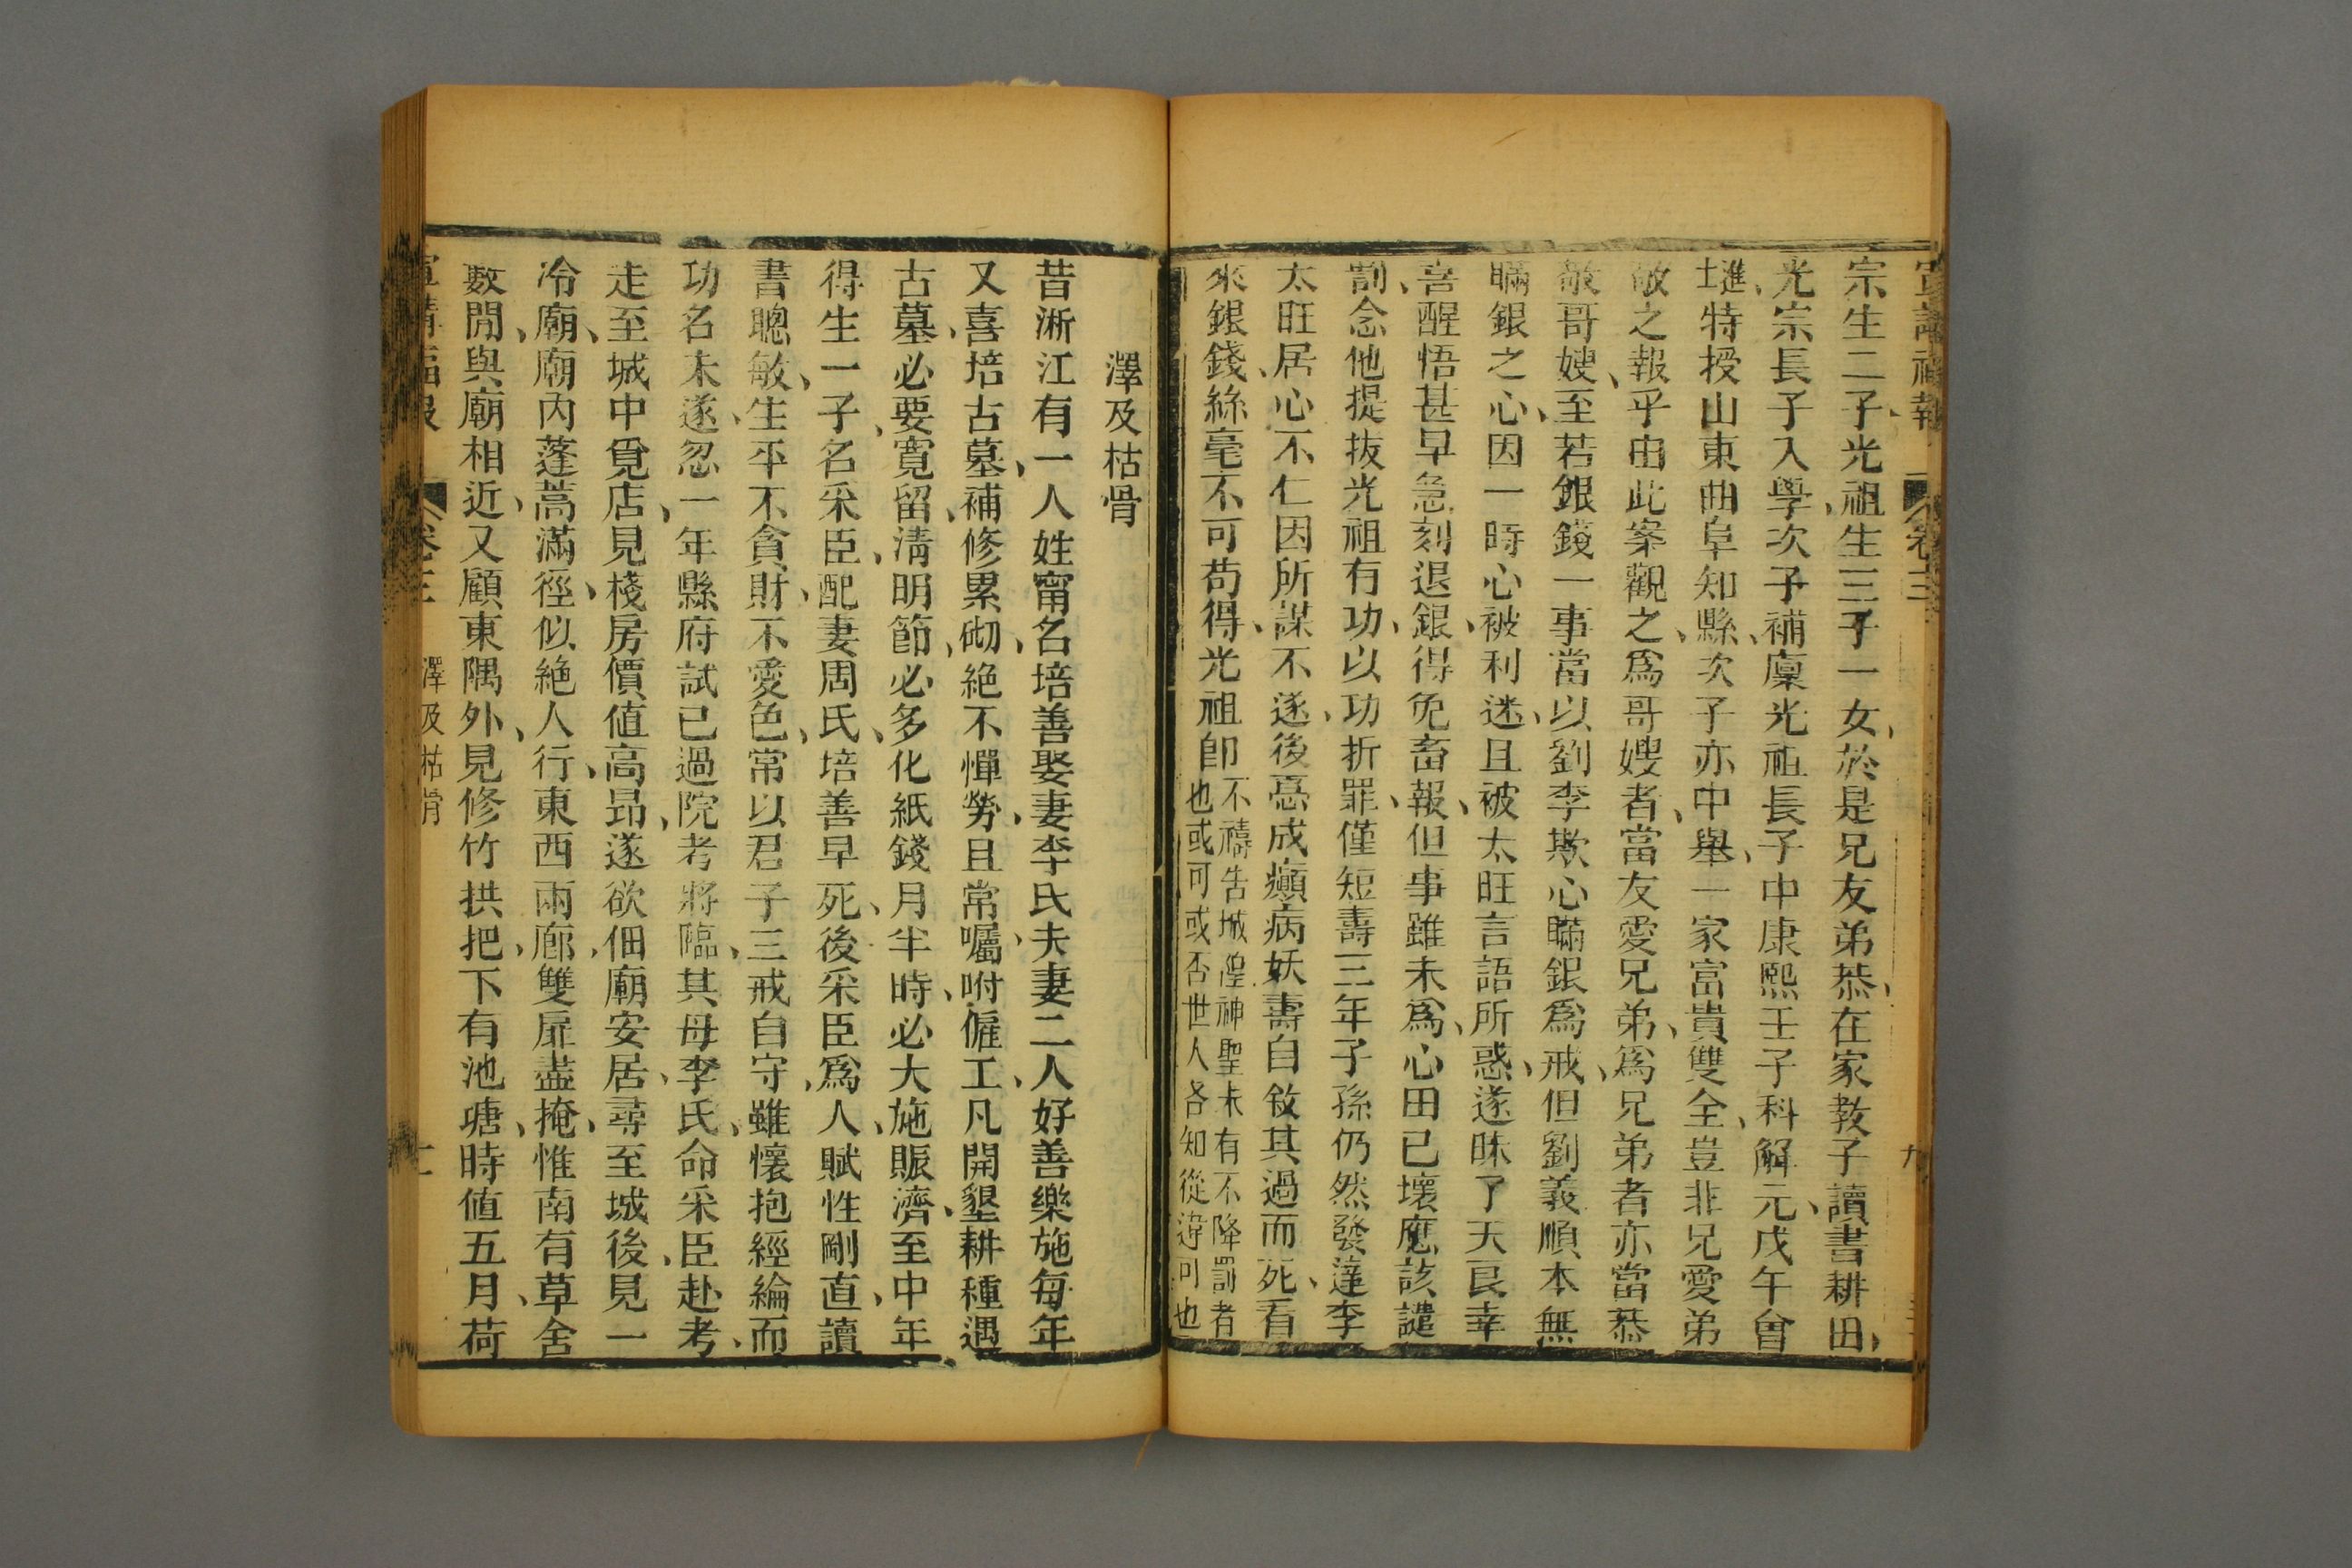 宣講福報 卷三 九
宗生二子、光祖生三子一女、於是兄友弟恭、在家教子讀書耕田、
光宗長子入學、次子補廩光祖長子中康熙壬子科解元、戊午會
進、特授山東曲阜知縣、次子亦中舉、一家富貴雙全、豈非兄愛弟
敬之報乎由此案觀之、爲哥嫂者、當友愛兄弟、爲兄弟者亦當恭
敬哥嫂、至若銀錢一事當以劉李欺心瞞銀爲戒、但劉義順本無
瞞銀之心、因一時心被利迷、且被太旺言語所惑、遂昧了天良幸
喜醒悟甚早急刻退銀、得免畜報、但事雖未爲、心田已壞應該譴
罰、念他提拔光祖有功、以功折罪、僅短壽三年子孫仍然發達李
太旺居心不仁因所謀不遂、後憂成癲病妖壽自敘其過而死、看
來銀錢、絲毫不可苟得、光祖卽不禱告城隍神聖未有不降罰者
也或可或否世人各知從違可也
澤及枯骨
昔淅江有一人姓甯名培善娶妻李氏夫妻二人好善樂施每年
又喜培古墓、補修累砌、絕不憚勞、且常囑咐僱工、凡開墾耕種遇
古墓、必要寬留、淸明節、必多化紙錢月半時、必大施賑濟、至中年
得生一子、名采臣、配妻周氏、培善早死、後采臣爲人、賦性剛直、讀
書聰敏、生平不貪財、不愛色、常以君子三戒自守、雖懷抱經綸而
功名未遂、忽一年縣府試已過院考將臨、其母李氏、命采臣赴考、
走至城中覓店、見棧房價値高昻、遂欲佃廟安居、尋至城後、見一
冷廟、廟內蓬蒿滿徑、似絕人行、東西兩廊、雙扉盡掩、惟南有草舍
數間、與廟相近、又顧東隅外、見修竹拱把、下有池塘、時値五月、荷
宣講福報 卷三 澤及枯骨